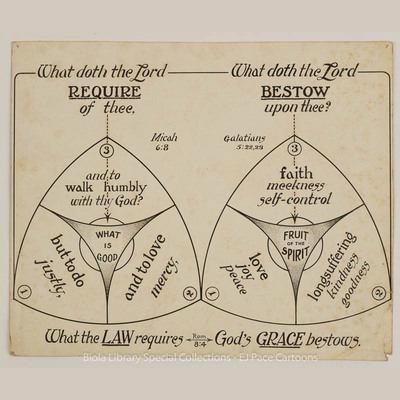 What doth the Lord
REQUIRE
of thee,
Micah
6:8
3
and to
walk humbly
with thy God?
WHAT
IS
GOOD
but to do
justly,
1
and to love
mercy,
2
What doth the Lord
BESTOW
upon thee?
Galatians
5:22,23
3
faith
meekness
self-control
FRUIT
OF THE
SPIRIT
love
joy
peace
1
longsuffering
kindness
goodness
2
What the LAW requires
Rom.
8:4
God's GRACE bestows.
Biola Library Special Collections - EJ Pace Cartoons